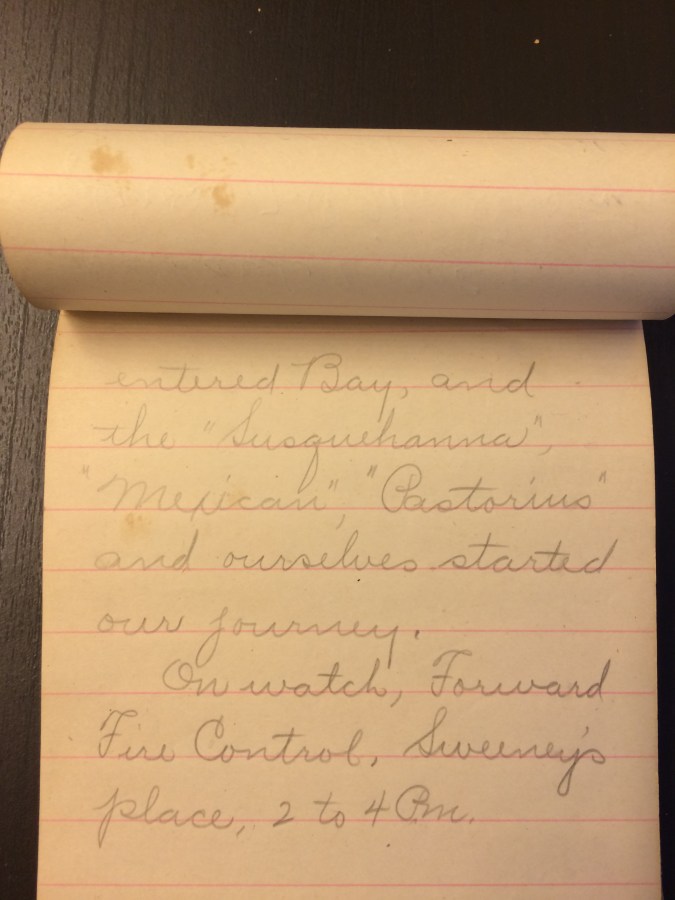 entered Bay, and
the "Susquehanna",
"Mexican", "Pastorius"
and ourselves started
our journey.
On watch, Forward
Fire Control, Sweeney's
place, 2 to 4 Pm.